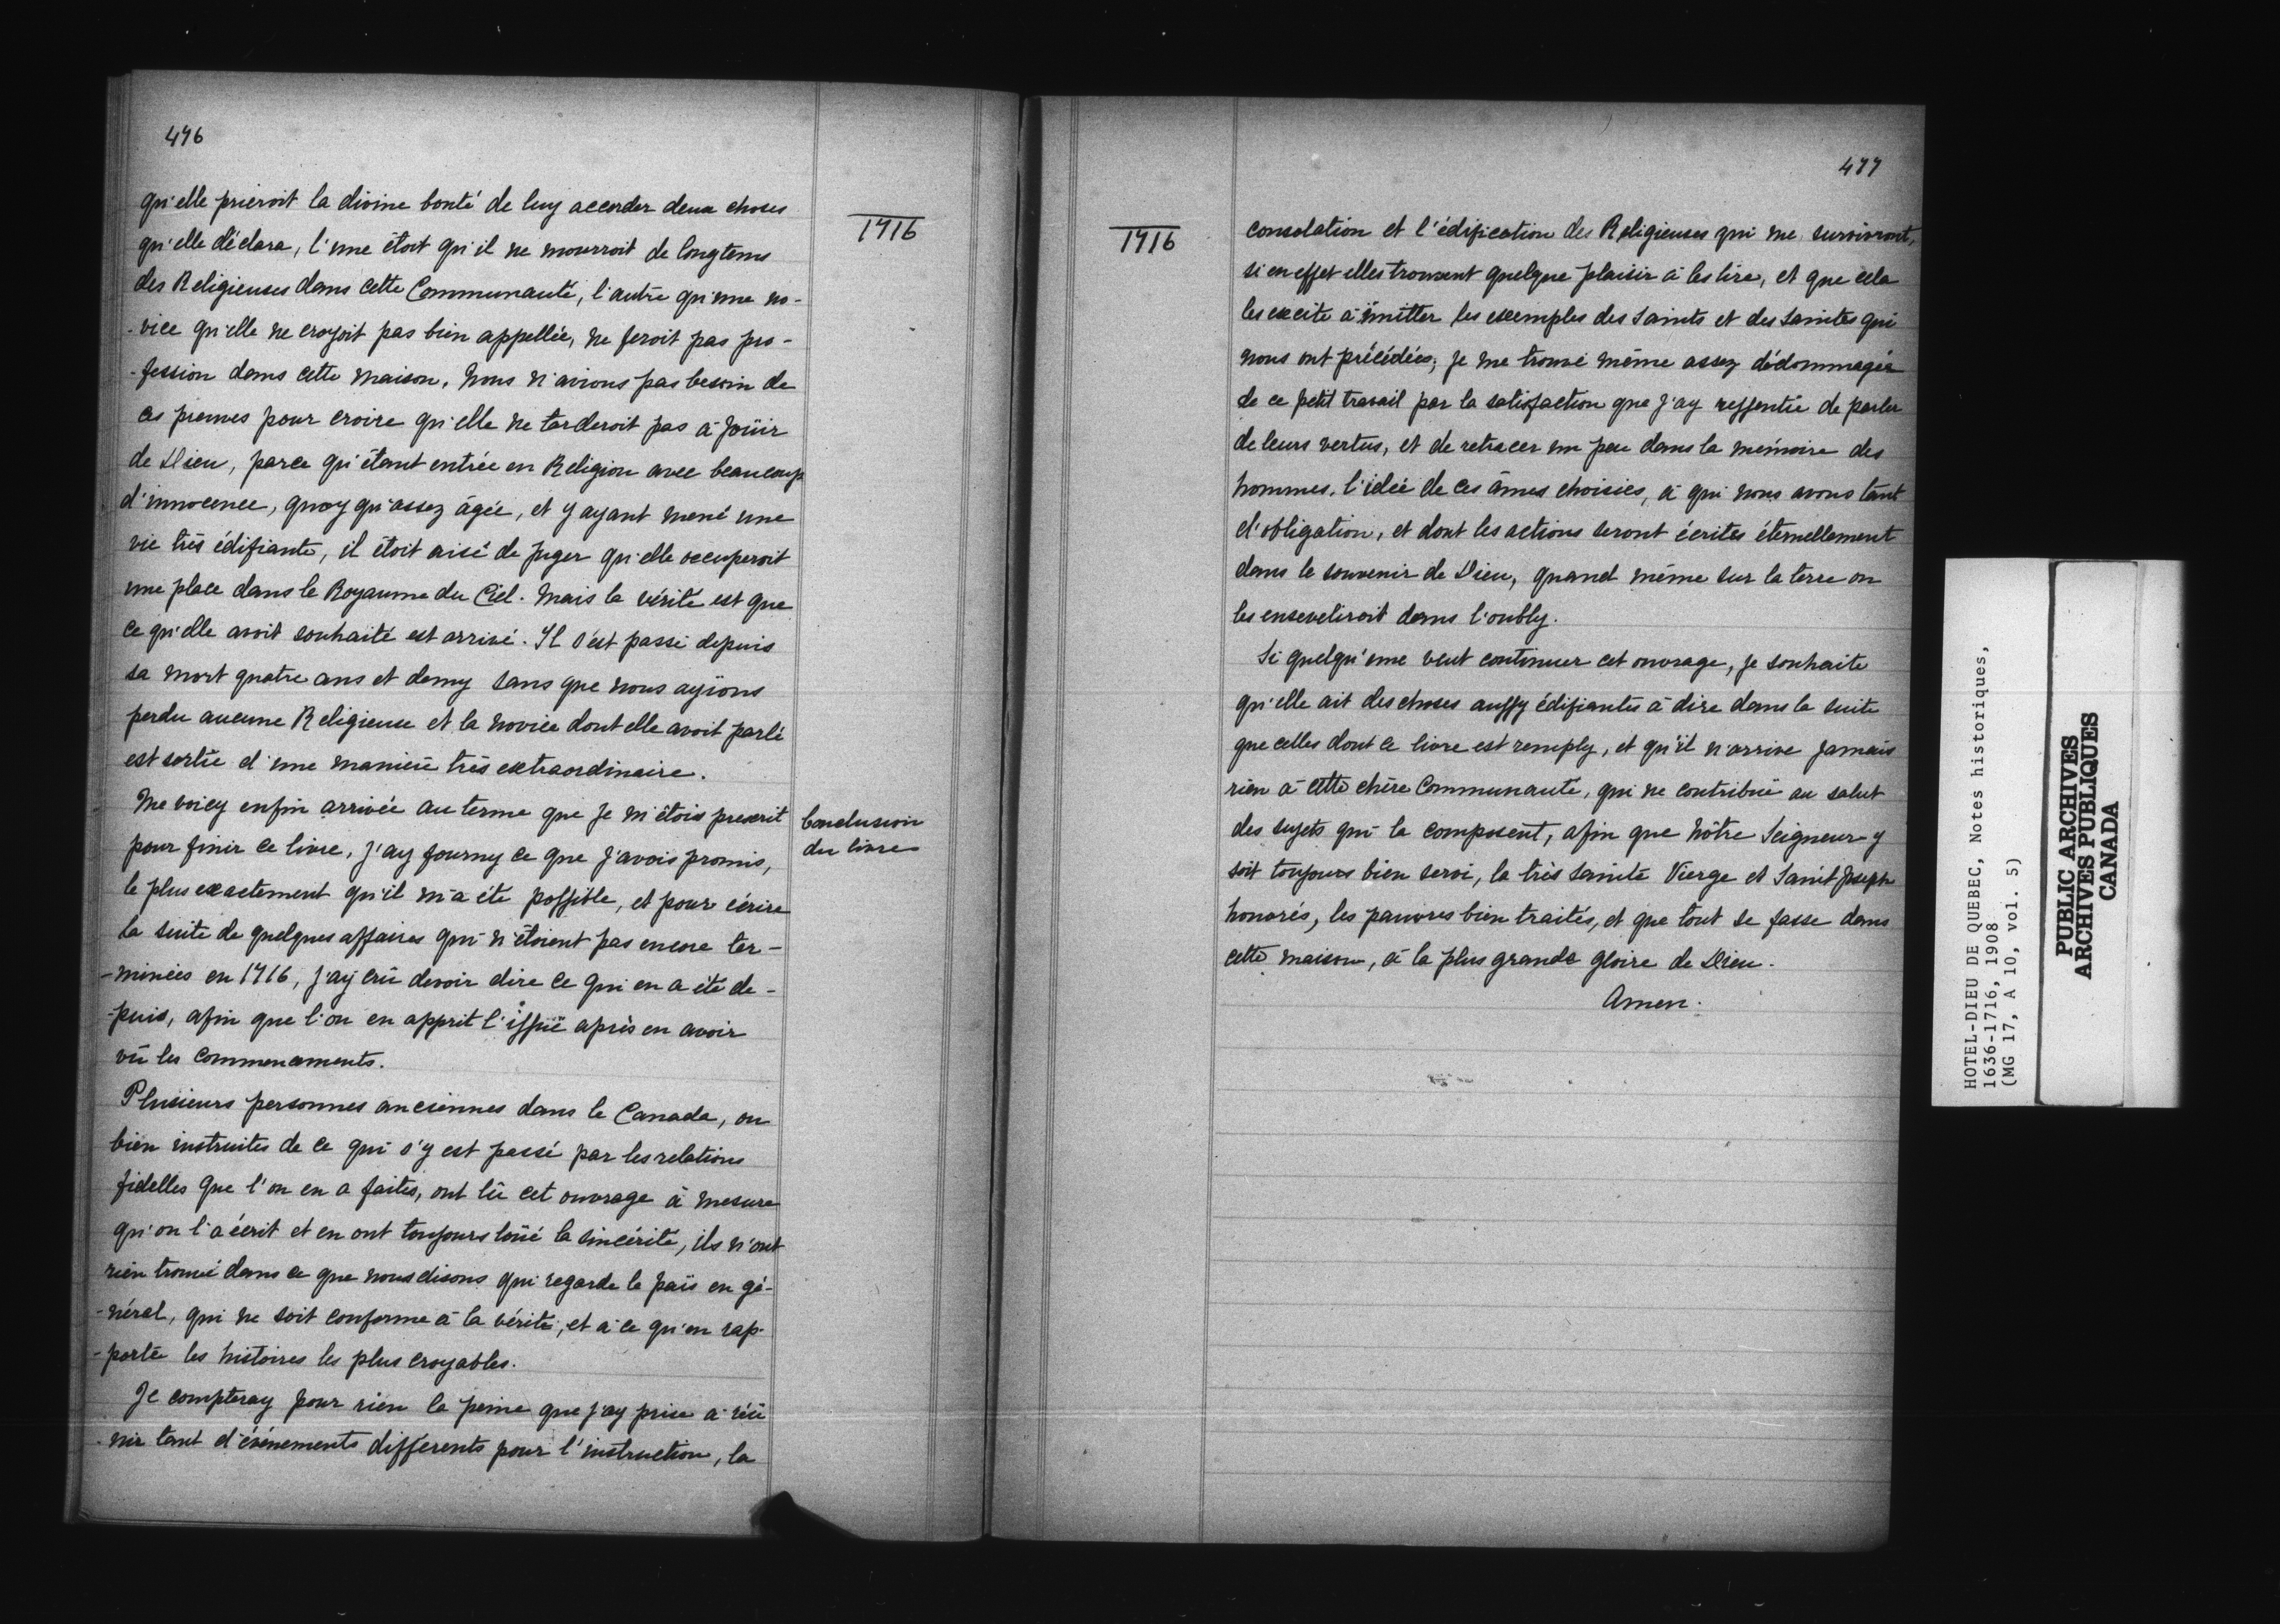 476
1716
qu'elle prieroit la divine bonté de luy accorder deux choses
qu'elle déclara, l'une étoit qu'il ne mourroit de longtems
des Religieuses dans cette Communauté, l'autre qu'une no-
-vice qu'elle ne croyoit pas bien appellée, ne feroit pas pro-
-fession dans cette maison, nous n'avions pas besoin de
ces preuves pour croire qu'elle ne tarderoit pas à joüir
de Dieu, parce qu'étant entrée en Religion avec beaucoup
d'innocence, quoy qu'assez âgée, et y ayant mené une
vie très édifiante, il étoit aisé de juger qu'elle occuperoit
une place dans le Royaume du Ciel. Mais la vérité est que
ce qu'elle avoit souhaité est arrivé. Il s'est passé depuis
sa mort quatre ans et demy sans que nous ayïons
perdu aucune Religieuse et la novice dont elle avoit parlé
est sortie d'une manière très extraordinaire.
Conclusion
du livre
Me voicy enfin arrivée au terme que je m'étois prescrit
pour finir ce livre, j'ay fourny ce que j'avois promis,
le plus exactement qu'il m'a été possible, et pour écrire
la suite de quelques affaires qui n'étoient pas encore ter-
-minées en 1716, j'ay crû devoir dire ce qui en a été de-
-puis, afin que l'on en apprit l'issuë après en avoir
vû les commencements.
Plusieurs personnes anciennes dans le Canada, ou
bien instruites de ce qui s'y est passé par les relations
fidelles que l'on en a faites, ont lû cet ouvrage à mesure
qu'on l'a écrit et en ont toujours loüé la sincérité, ils n'ont
rien trouvé dans ce que nous disons qui regarde le païs en gé-
-néral, qui ne soit conforme à la vérité, et à ce qu'en rap-
-porte les histoires les plus croyables.
Je compteray pour rien la peine que j'ay prise à réü
-nir tant d'événements differents pour l'instruction, la
477
1716
consolation et l'édification des Religieuses qui me survivront,
si en effet elles trouvent quelque plaisir à les lire, et que cela
les excite à imitter les exemples des Saints et des Saintes qui
nous ont précédées, je me trouve même assez dédommagée
de ce petit travail par la satisfaction que j'ay ressentie de parler
de leurs vertus, et de retracer un peu dans la mémoire des
hommes, l'idée de ces âmes choisies, à qui nous avons tant
d'obligation, et dont les actions seront écrites éternellement
dans le souvenir de Dieu, quand même sur la terre on
les enseveliroit dans l'oubly.
Si quelqu'une veut continuer cet ouvrage, je souhaite
qu'elle ait des choses aussy édifiantes à dire dans la suite
que celles dont ce livre est remply, et qu'il n'arrive jamais
rien à cette chère Communauté, qui ne contribuë au salut
des sujets qui la composent, afin que Nôtre Seigneur y
soit toujours bien servi, la très Sainte Vierge et Saint Joseph
honorés, les pauvres bien traités, et que tout se fasse dans
cette maison, à la plus grande gloire de Dieu.
Amen.
HOTEL-DIEU DE QUEBEC, Notes historiques,
1636-1716, 1908
(MG 17, A 10, vol. 5)
PUBLIC ARCHIVES
ARCHIVES PUBLIQUES
CANADA